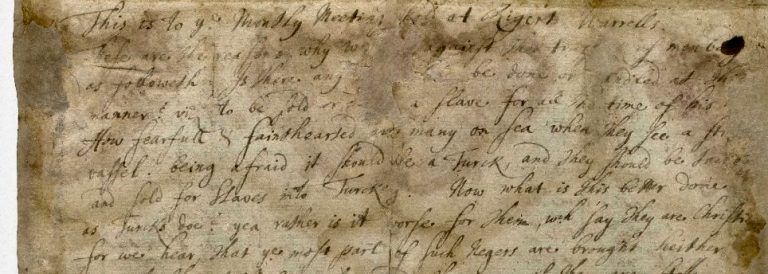 This is to ye Monthly Meeting held at Rigert Worrells.
These are the reasons why we against the of men
as followeth. Is there any be done or at this
manner? viz to be sold or a slave for all the time of his
How fearfull & fainthearted are many on sea when they see a
vassel. being afraid it should be a Turck, and they should be
and sold for slaves into Turckey. Now what is this better done
as Turcks doe? yea rather is it worse for them, wch say they are
for we hear, that ye most part of such Negers are brought heither